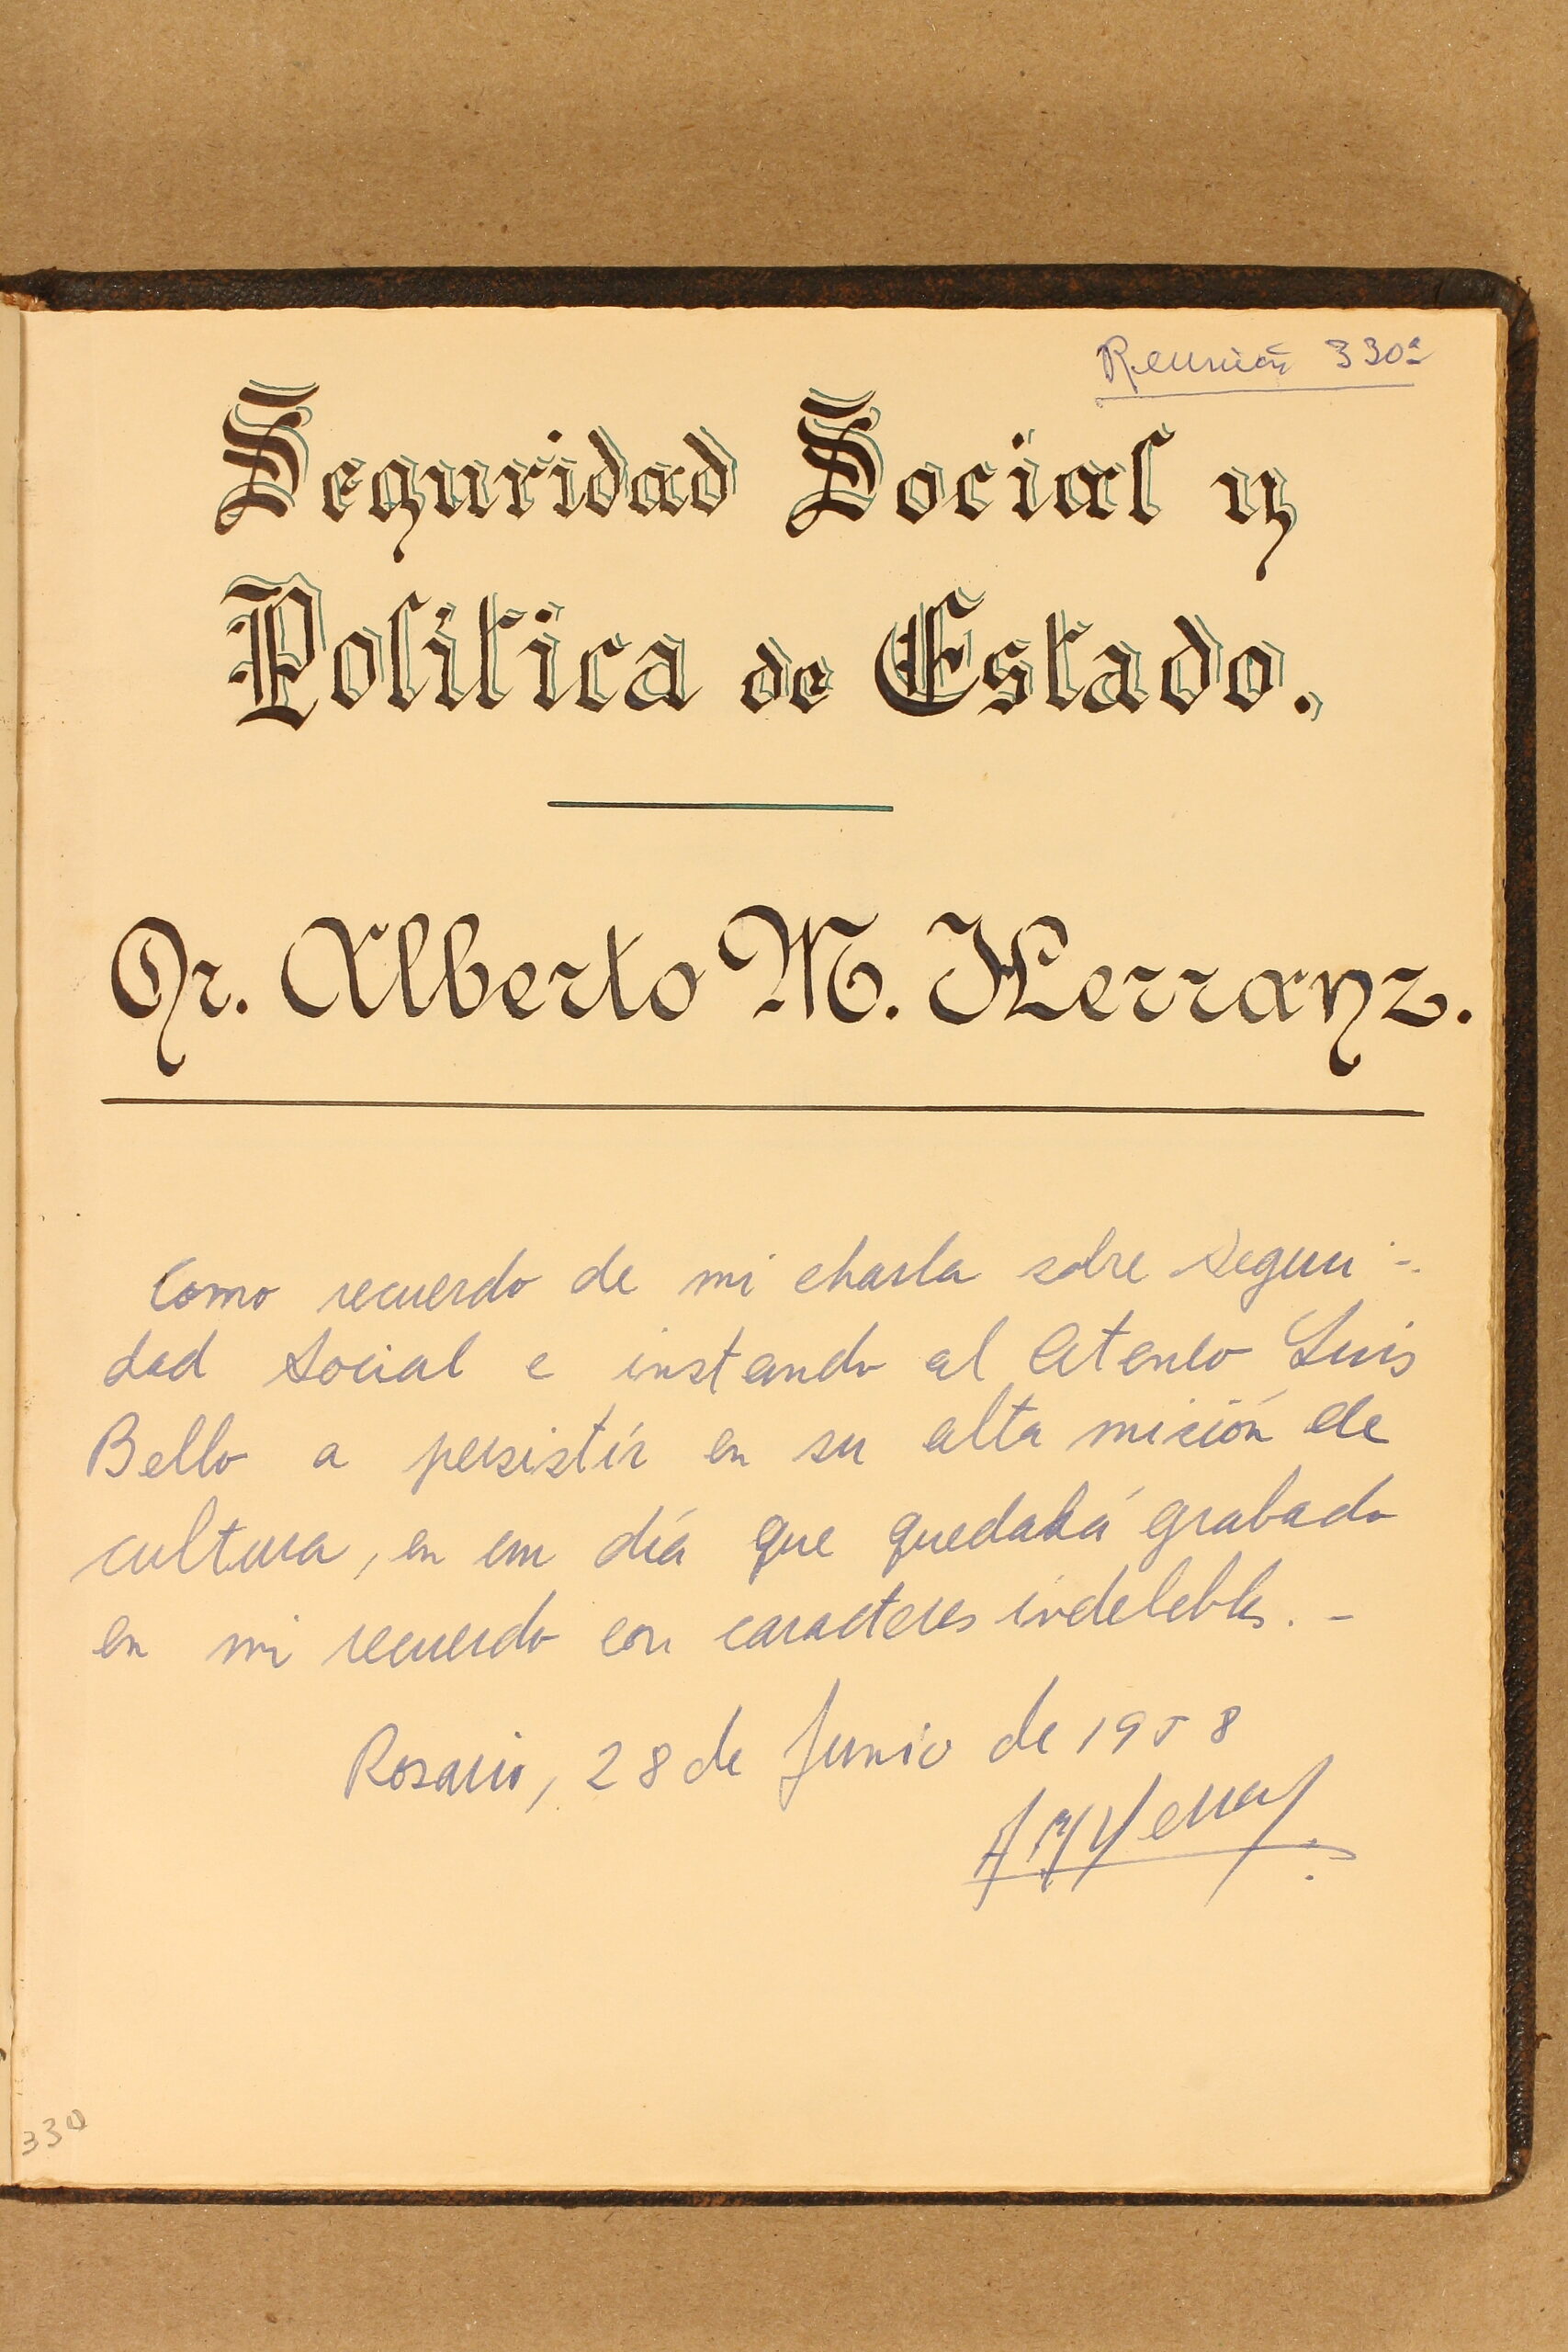 Reunión 330ª
Seguridad Social y
Política de Estado.
Dr. Alberto M. Herranz.
Como recuerdo de mi charla sobre Seguri-
dad Social e instando al Ateneo Luis
Bello a persistir en su alta misión de
cultura, en un día que quedará grabado
en mi recuerdo con caracteres indelebles. -
Rosario, 28 de Junio de 1958
330